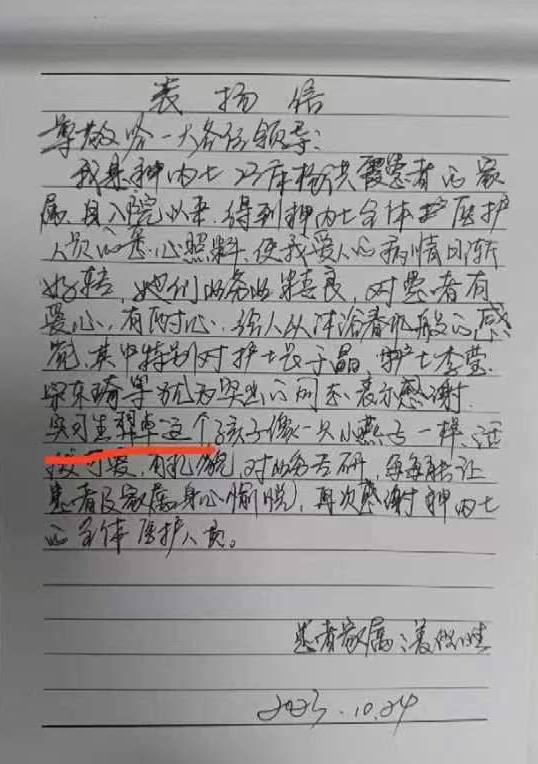 表扬信
尊敬哈一大各位领导：
我是神内七23床杨洪霞患者的家
属，自入院以来，得到神内七全体护医护
人员的悉心照料，使我爱人的病情日渐
好转，她们业务业精良，对患者有
爱心，有耐心，给人以沐浴春风般的感
觉，其中特别对护士长于晶，护士李莹、
等尤为突出的同志表示感谢，
实习生 这个孩子像一只小燕子一样，活
泼可爱，有礼貌，对业务 研，让
患者及家属身心愉悦，再次感谢神内七
的全体医护人员。
患者家属：姜
2023.10.24